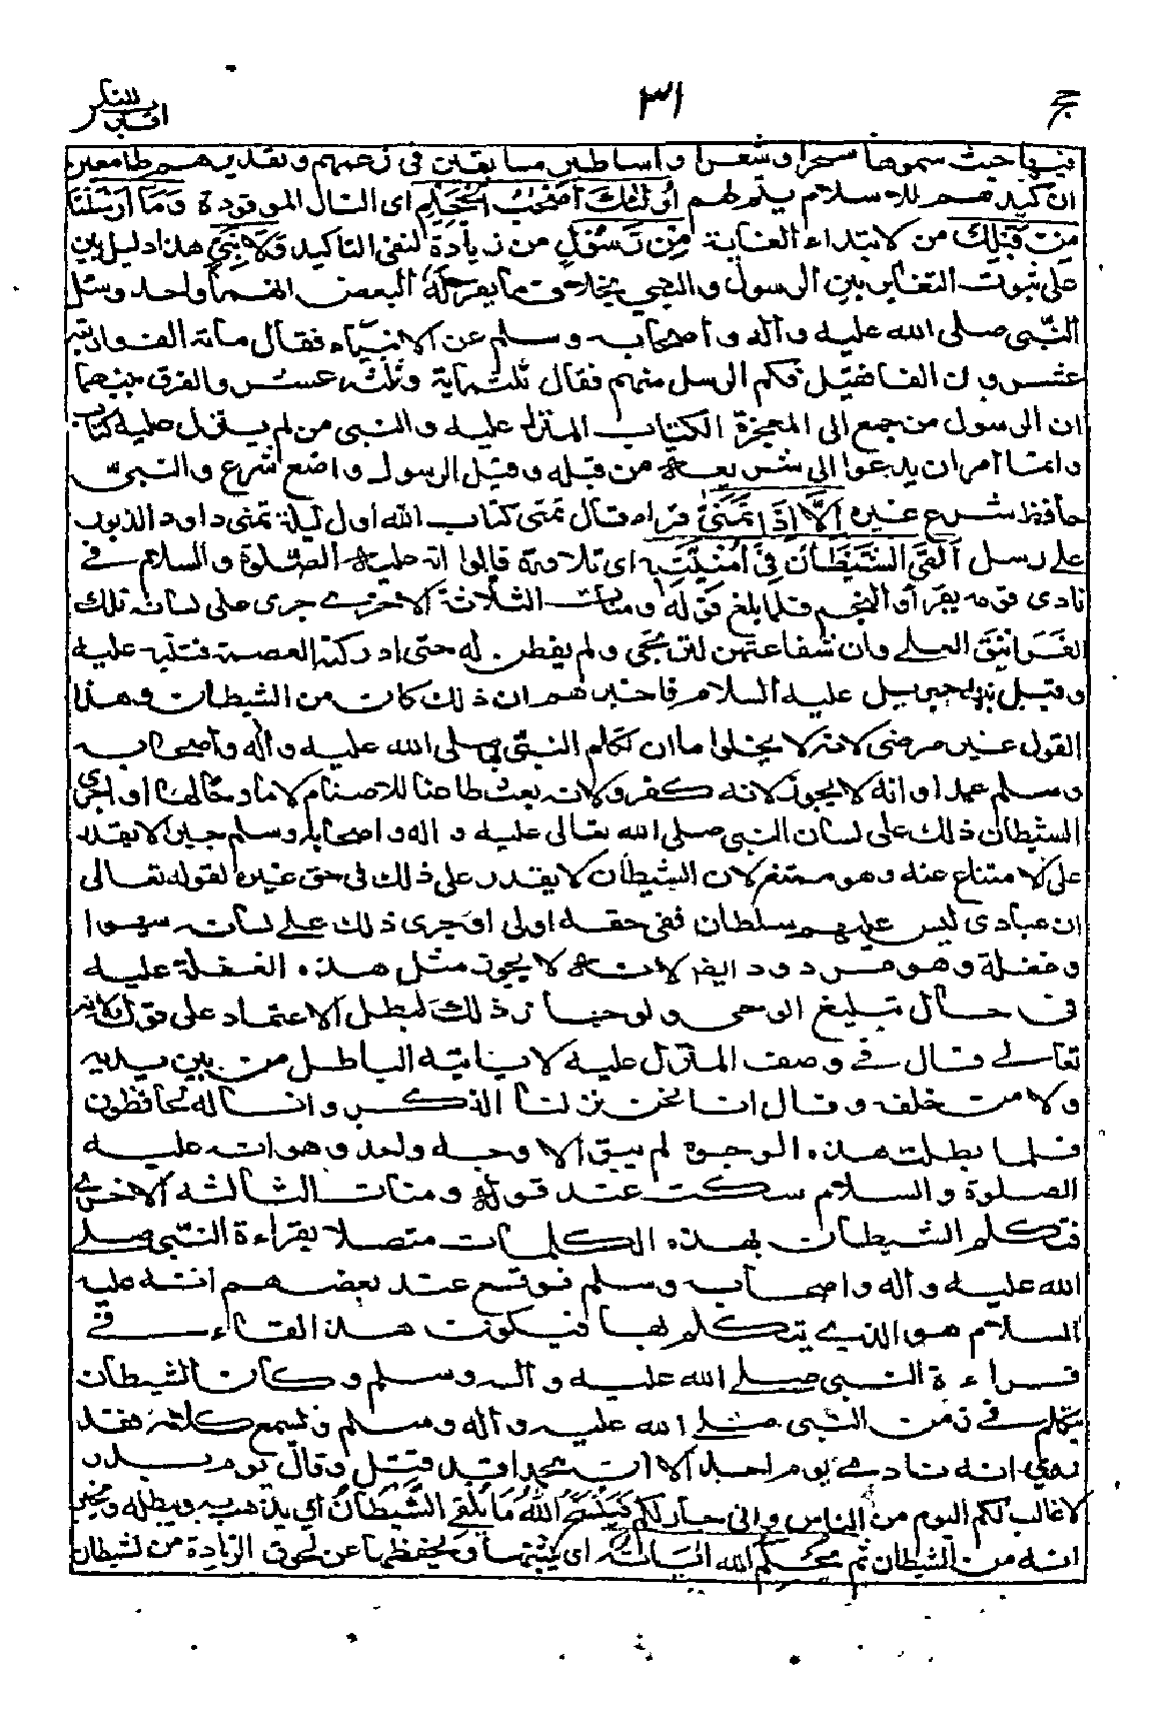 حج ٣١ اقترب للناس
فيها حيث سموها سحرا وشعرا واساطير مسابقين فى زعمهم وتقديرهم طامعين
ان كيدهم للاسلام يتم لهم اُولٰئِكَ اَصْحٰبُ الْجَحِيْمِ اى النار الموقودة وَمَا اَرْسَلْنَا
مِنْ قَبْلِكَ من لابتداء الغاية مِنْ رَسُوْلٍ من زيادة لنفى التاكيد وَلَا نَبِىٍّ هذا دليل بين
على ثبوت التغاير بين الرسول والنبى بخلاف ما يقرحله البعض انهما واحد وسئل
النبى صلى الله عليه وآله واصحابه وسلم عن الانبياء فقال مائة الف واربعة
عشرون الفا فقيل فكم الرسل منهم فقال ثلثماية وثلثه عشر والفرق بينهما
ان الرسول من جمع الى المعجزة الكتاب المنزل عليه والنبى من لم ينزل عليه كتاب
وانما امر ان يدعوا الى شريعة من قبله وقيل الرسول واضع شرع والنبى
حافظ شرع غيره اِلَّا اِذَا تَمَنّٰى قراء قال تمنى كتاب الله اول ليلة تمنى داود الذبور
على رسل اَلْقَى الشَّيْطَانُ فِىْ اُمْنِيَّتِه اى تلاوته قالوا انه عليه الصلوة والسلام فى
نادى قومه يقرأ والنجم فلما بلغ قوله ومنات الثلاثة الاخرى جرى على لسانه تلك
الغرانيق العلى وان شفاعتهن لترتجى ولم يفطن له حتى ادركته العصمة فتنبه عليه
وقيل نبهه جبريل عليه السلام فاخبرهم ان ذلك كان من الشيطان وهذا
القول غير مرضى لانه لا يخلوا ما ان تكلم النبى بها صلى الله عليه وآله واصحابه
وسلم عمدا وانه لا يجوز لانه كفر ولانه بعث طاعنا للاصنام لا مادحا لها او اجرى
الشيطان ذلك على لسان النبى صلى الله تعالى عليه واله واصحابه وسلم جبرا لا يقدر
على الامتناع عنه وهو ممتنع لان الشيطان لا يقدر على ذلك فى حق غيره لقوله تعالى
ان عبادى ليس عليهم سلطان ففى حقه اولى او جرى ذلك على لسانه سهوا
وغفلة وهو مردود ايضا لانه لا يجوز مثل هذه الغفلة عليه
فى حال تبليغ الوحى ولو جاز ذلك لبطل الاعتماد على قوله لانه
تعالى قال فى وصف المنزل عليه لا ياتيه الباطل من بين يديه
ولا من خلفه وقال انا نحن نزلنا الذكر وانا له لحافظون
فلما بطلت هذه الوجوه لم يبق الا وجه واحد وهو انه عليه
الصلوة والسلام سكت عند قوله ومنات الثالثه الاخرى
فتكلم الشيطان بهذه الكلمات متصلا بقراءة النبى صلى
الله عليه وآله واصحاب وسلم فوقع عند بعضهم انه عليه
السلام هو الذى يتكلم بها فيكون هذا القاء فى
قراءة النبى صلى الله عليه واله وسلم وكان الشيطان
يتكلم فى زمن النبى صلى الله عليه وآله وسلم ويسمع كلامه فقد
روى انه نادى يوم احد الا ان محمدا قد قتل وقال يوم بدر
لا غالب لكم اليوم من الناس وانى جار لكم فَيَنْسَخُ اللهُ مَا يُلْقِى الشَّيْطَانُ اى يذهب به ويبطله ويخبر
انه من الشيطان ثُمَّ يُحْكِمُ الله اٰيَاتِه اى يثبتها ويحفظها عن لحوق الزيادة من الشيطان